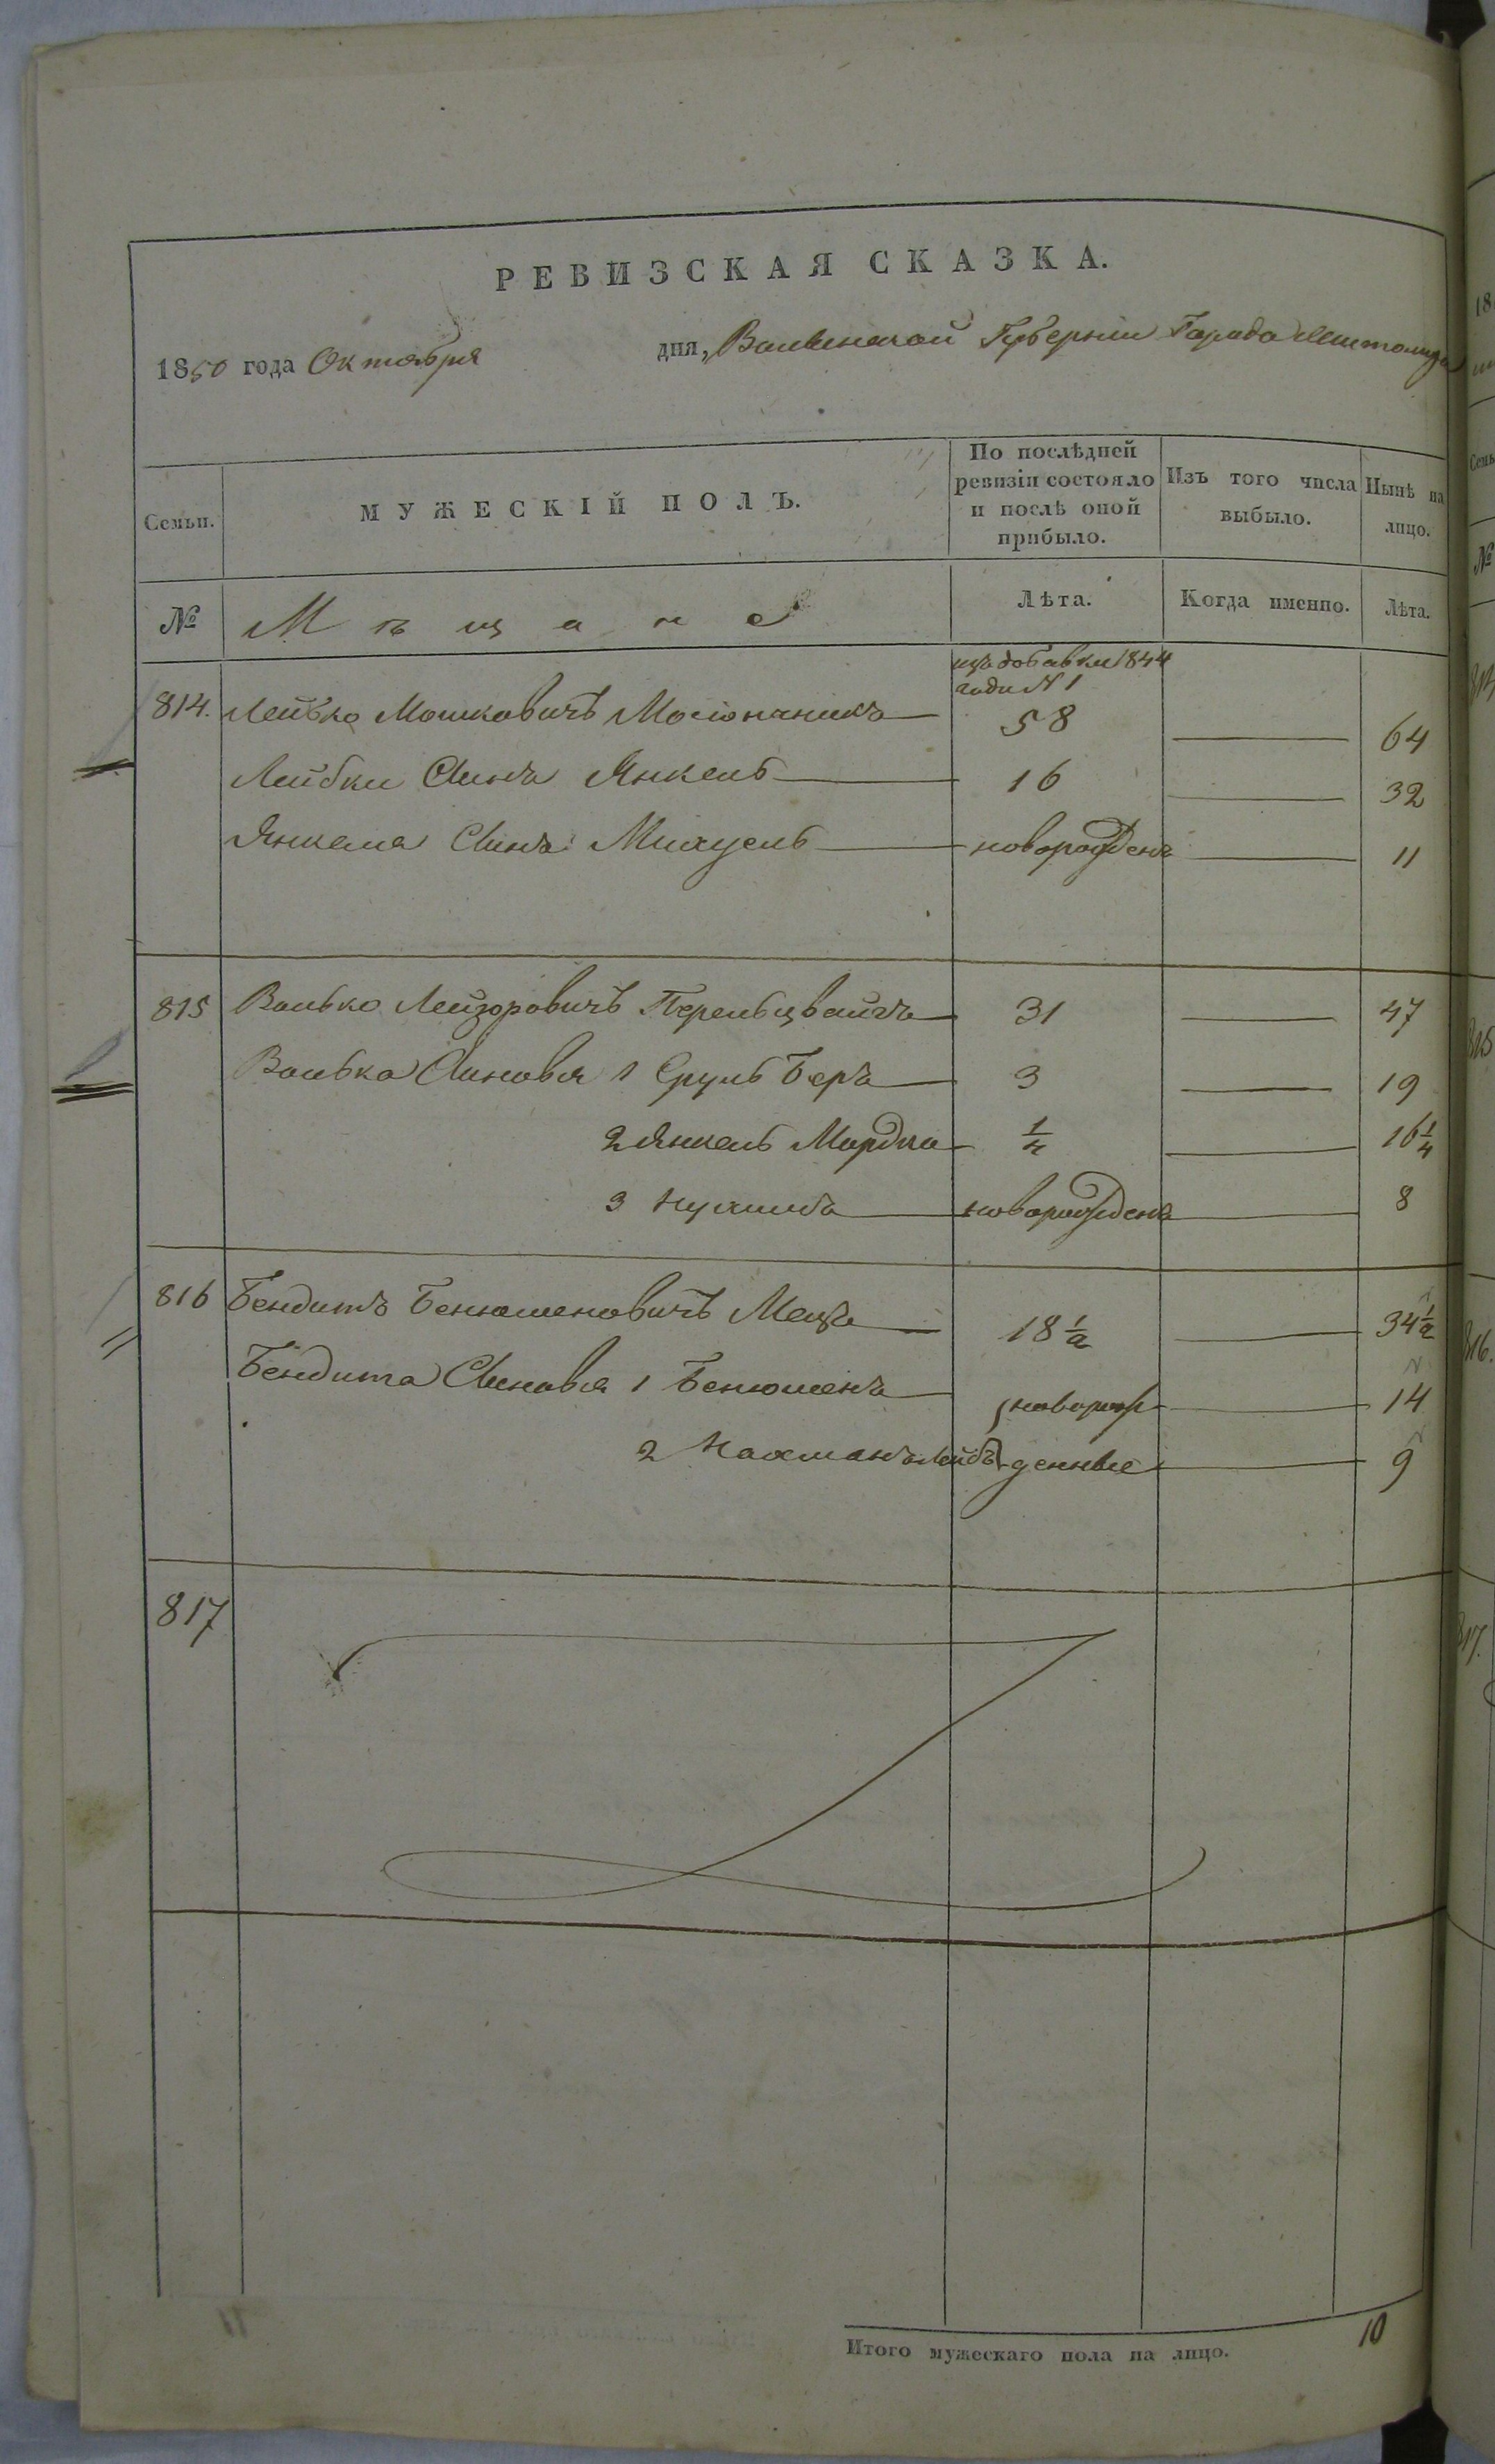 РЕВИЗСКАЯ СКАЗКА.
1850 года Октября дня, Волынской Губернии Города Житомира
Семьи. МУЖЕСКІЙ ПОЛЪ. По послѣдней ревизіи состояло и послѣ оной прибыло. Изъ того числа выбыло. Нынѣ на лицо.
№ Мѣщане Лѣта. Когда именно. Лѣта.
изъ добавки 1844
года № 1
814. Лейбко Мошковичъ 58 64
Лейбки Сынъ Янкель 16 32
Янкеля Сынъ Михель новорожденъ 11
815 Волько Лейзоровичъ Перельцвайгъ 31 47
Волька Сыновья 1 Сруль Беръ 3 19
2 Янкель Мордко 1/4 16 1/4
3 Нухимъ новорожденъ 8
816 Бендитъ Бенюменовичъ Мецъ 18 1/2 34 1/2
Бендита Сыновья 1 Бенюменъ новорож 14
2 Нахманъ Лейбъ денные 9
817
Итого мужескаго пола на лицо. 10